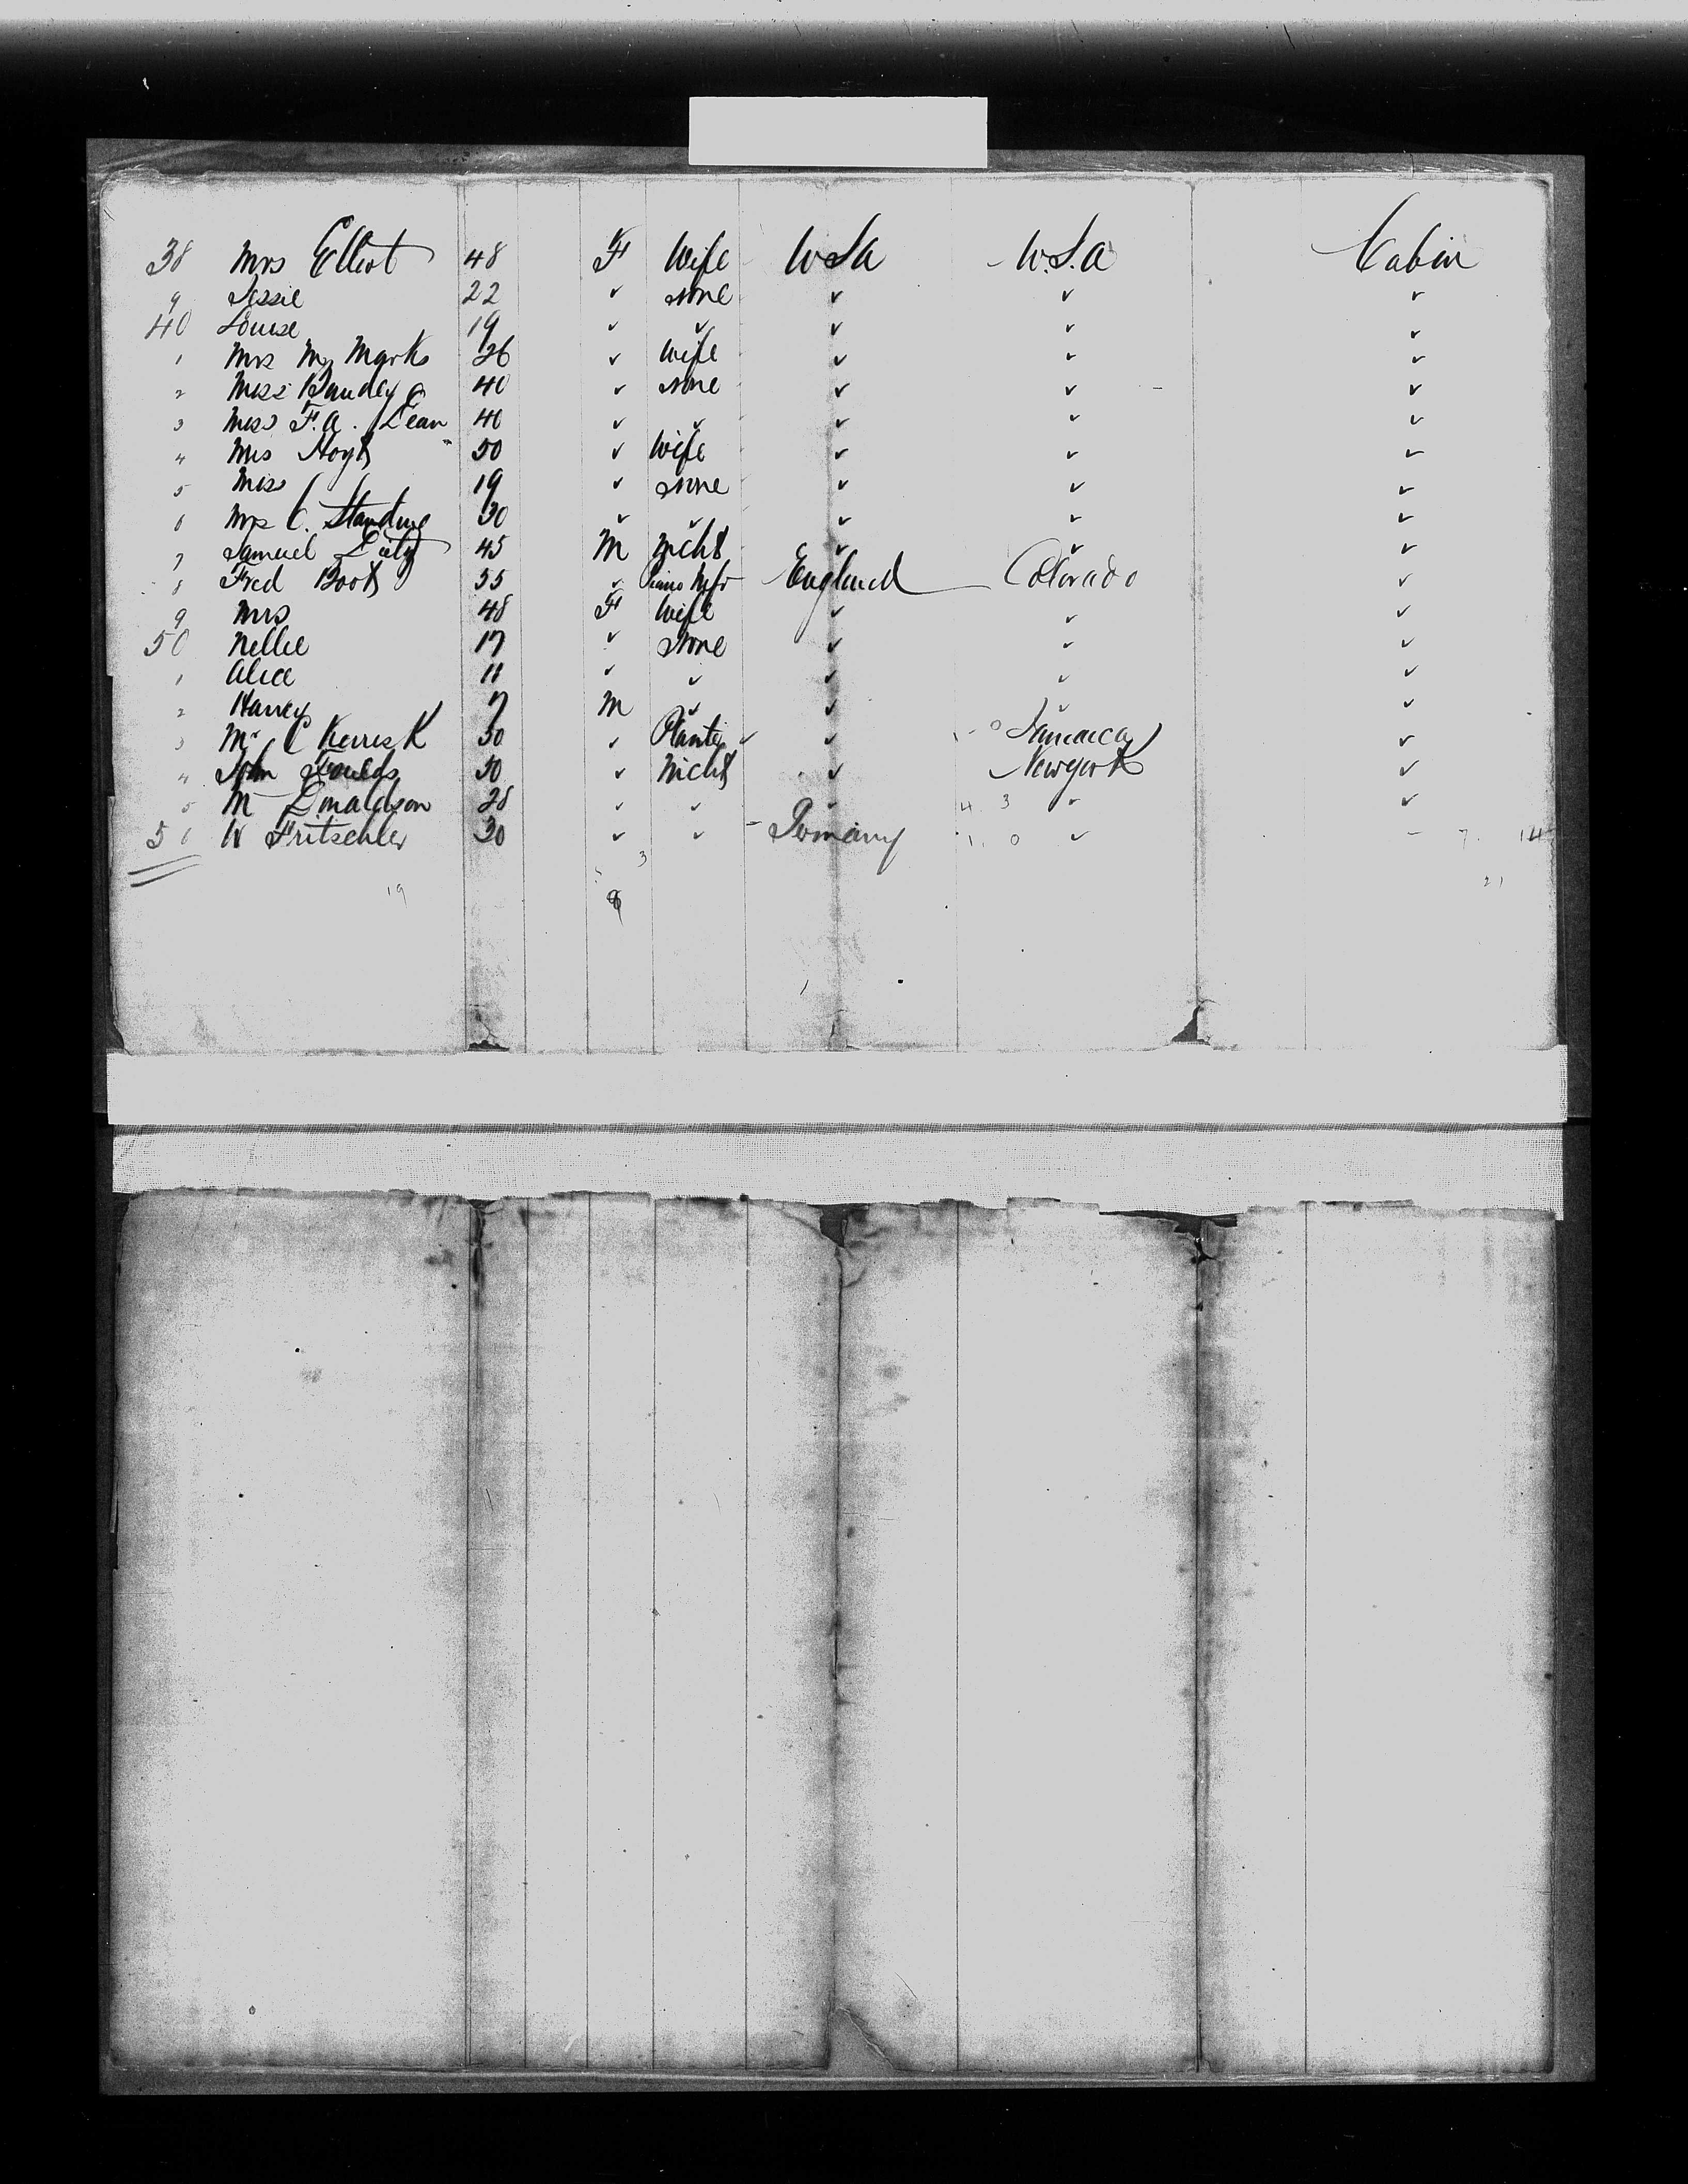 38 Mrs Elliot 48 F Wife U.S.A U.S.A Cabin
9 Jessie 22 ✓ None ✓ ✓ ✓
40 Louise 19 ✓ ✓ ✓ ✓ ✓
1 Mrs M Marks 26 ✓ Wife ✓ ✓ ✓
2 Miss 40 ✓ None ✓ ✓ ✓
3 Miss F.A. Dean 40 ✓ ✓ ✓ ✓ ✓
4 Mrs Hoyt 50 ✓ Wife ✓ ✓ ✓
5 Miss 19 ✓ None ✓ ✓ ✓
6 Mrs C. Standing 30 ✓ ✓ ✓ ✓ ✓
7 Samuel 45 M Mcht ✓ ✓ ✓
8 Fred Booth 55 ✓ Piano Mfr England Colorado ✓
9 Mrs 48 F Wife ✓ ✓ ✓
50 Nellie 17 ✓ None ✓ ✓ ✓
1 Alice 11 ✓ ✓ ✓ ✓ ✓
2 Harvey 7 M ✓ ✓ ✓ ✓
3 Mr C 30 ✓ Planter ✓ Jamaica ✓
4 John Foulds 30 ✓ Mcht ✓ New York ✓
5 M Donaldson 28 ✓ ✓ ✓ 4 3 ✓ ✓
56 W Fritschler 30 ✓ ✓ Germany 1. 0 ✓ 7. 14
3
19 21
8